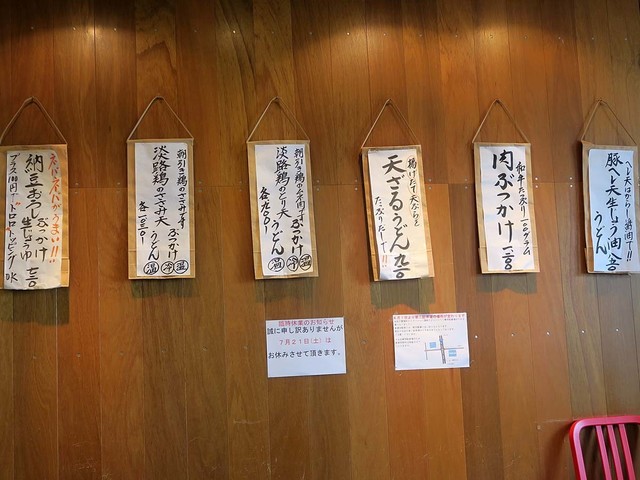 ヘレ天はからし醤油で!!
豚ヘレ天生じょう油 八五〇
うどん
和牛たっぷり一一〇グラム
肉ぶっかけ 一、一三〇
揚げたて天ぷらと
天ざるうどん 九一〇
たっぷりだしで!!
朝引き鶏のムネ肉です
淡路鶏のとり天 ぶっかけ 温 冷 温
各九〇〇- うどん
朝引き鶏のささみです
淡路鶏のささみ天 ぶっかけ 温 冷 温
各一〇三〇- うどん
ネバネバがうまい!!!
納豆おろし ぶっかけ
生じょうゆ
プラス100円でトロロトッピングOK
臨時休業のお知らせ
誠に申し訳ありませんが
7月21日(土)は
お休みさせて頂きます。